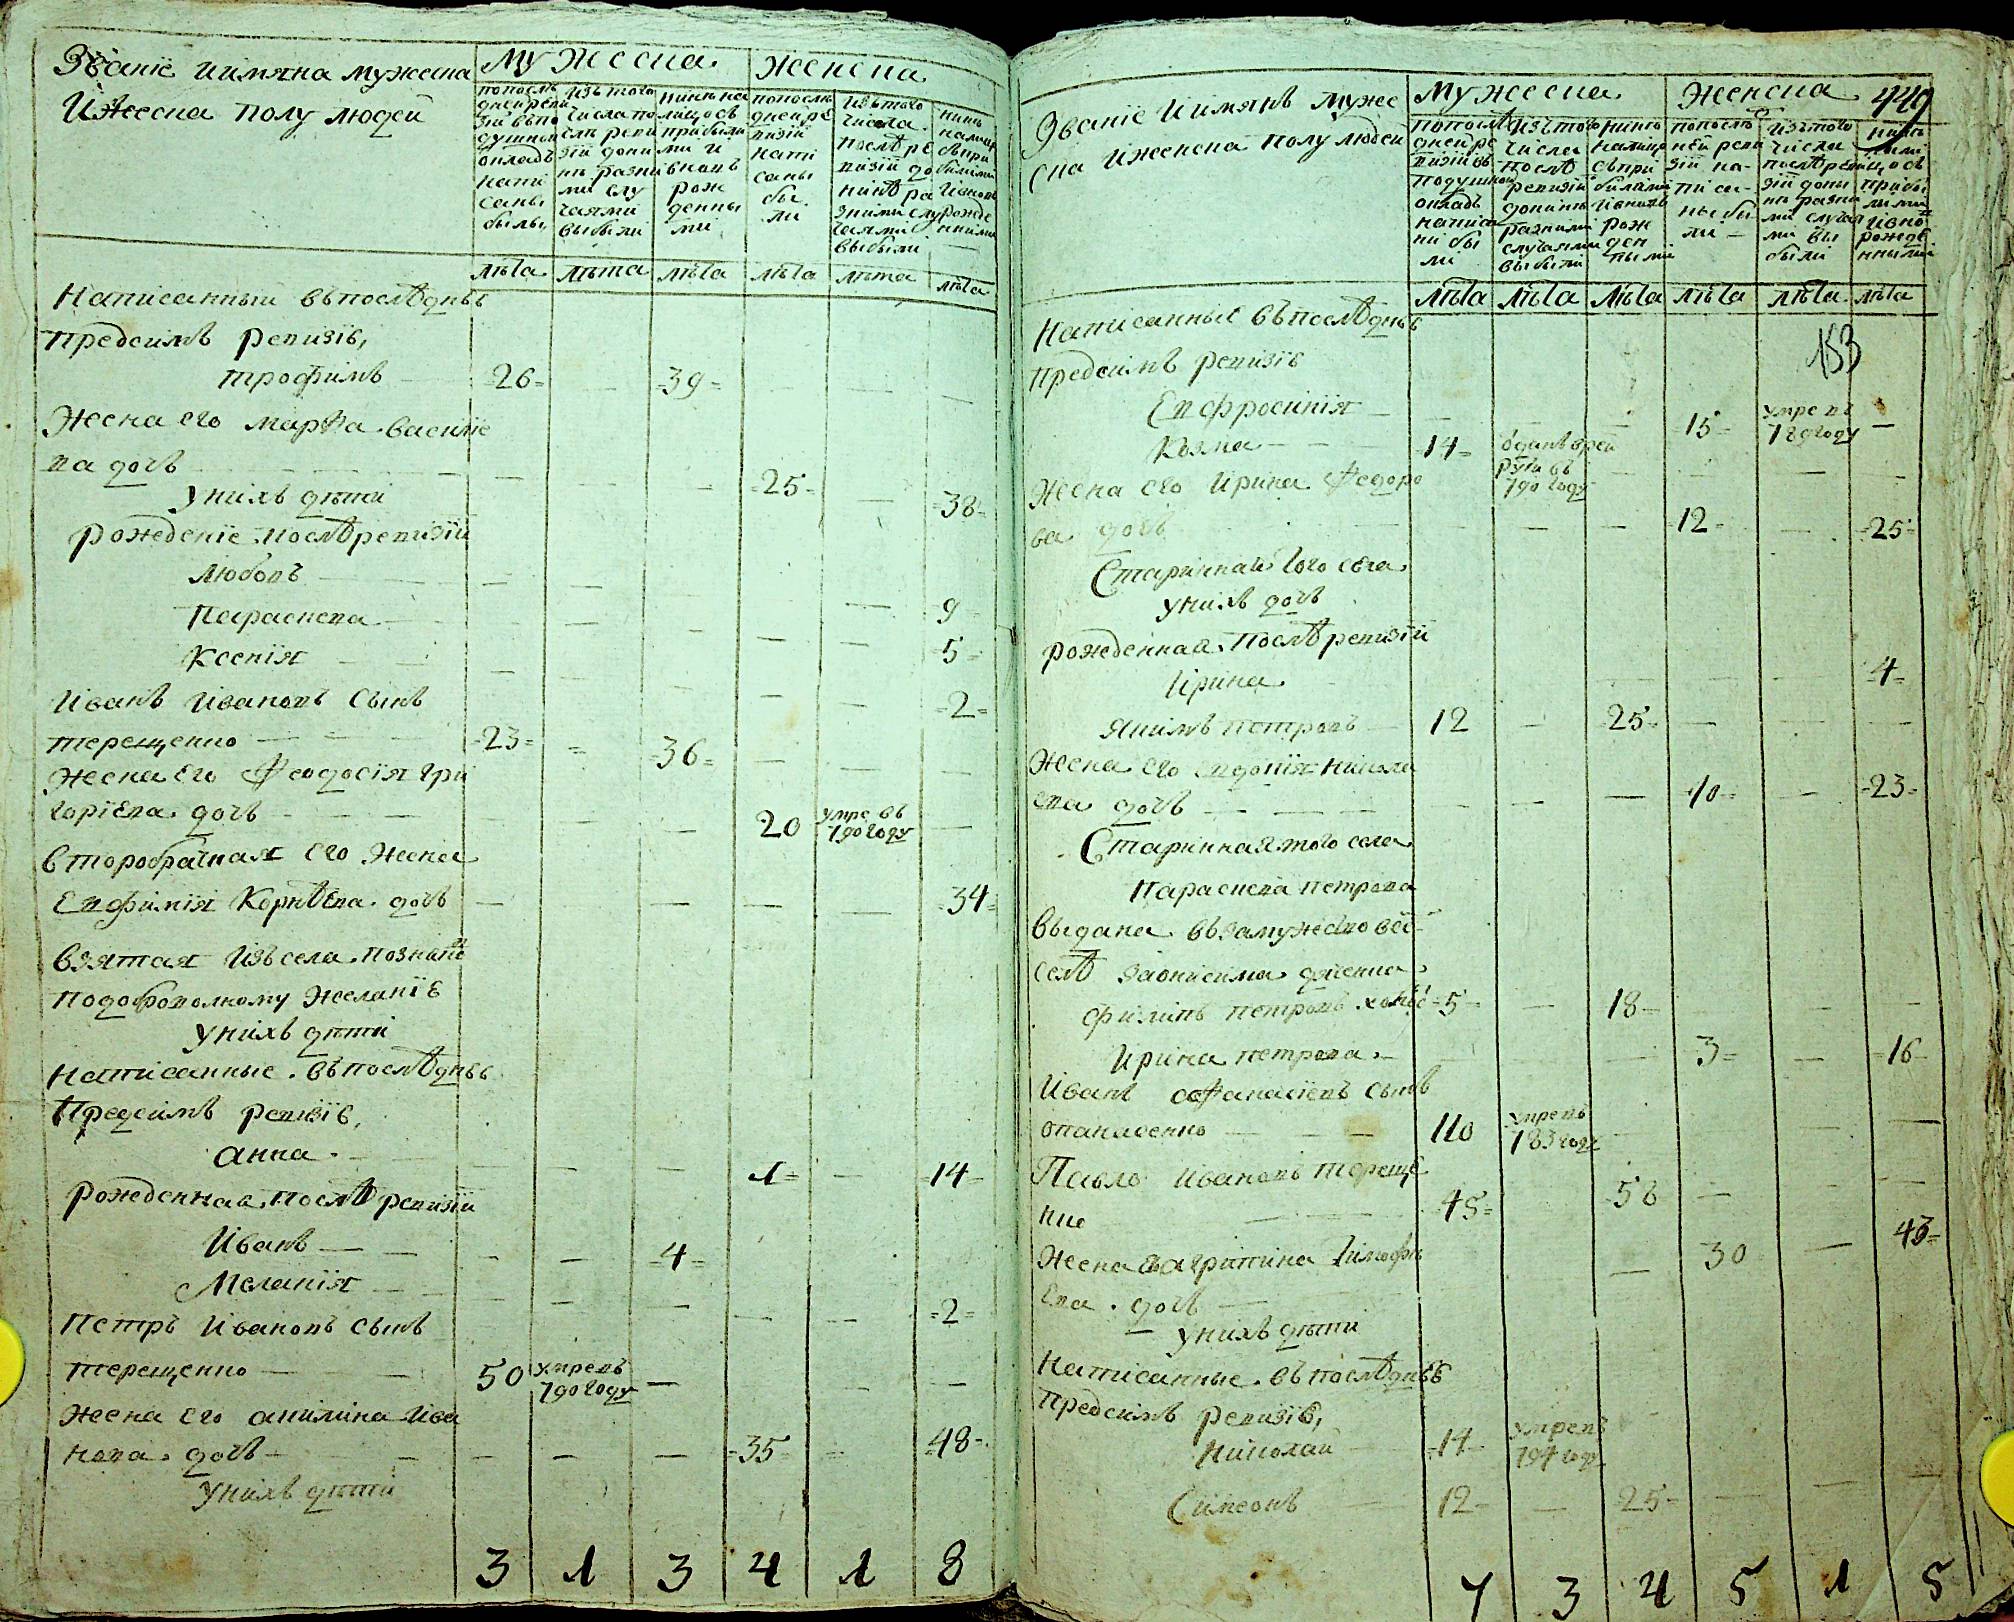 Званіе иимяна мужеска
Иженска полу людей
Мужеска
Женска
попослѣ
дней реви
зіи въпо
душной
окладъ
напи
саны
были
изътого
числа по
слѣ реви
зіи до ни
нѣ разны
ми слу
чаями
выбыли
нинѣ на
лицо съ
прибылы
ми и
вновь
рож
денны
ми
попослѣ
дней ре
визіи
напи
саны
бы
ли
изътого
числа
послѣ ре
визіи до
нинѣ ра
зними слу
чаями
выбыли
нинѣ
налицо
съпри
былими
ивновь
рожде
нними
лѣта лѣта лѣта лѣта лѣта лѣта
Написанный въпослѣднѣе
Предсимъ Ревизіѣ,
Трофимъ 26 39
Жена его марѳа василіе
ва дочь 25 38
Унихъ дѣти
Рожденіе послѣ ревизіи
Любовь 9
Параскева 5
Ксенія 2
Иванъ Ивановъ Сынъ
терещенко 23 36
Жена его Ѳеодосія гри
горіева дочь 20 умре въ 790 году
второбрачная его Жена
Евфимія Корнѣева дочь 34
Взятая изъ села познани
подобровольному Желаніѣ
Унихъ дѣти
Написанные въпослѣднѣе
Предсимъ Ревизіѣ,
анна 1 14
Рожденная послѣ ревизіи
Иванъ 4
Меланія 2
Петръ Ивановъ сынъ
терещенко 50 умревъ 790 году
Жена его акилина ива
нова дочь 35 48
Унихъ дѣти
3 1 3 4 1 8
Званіе иимянъ муже
ска иженска полу людей
Мужеска
Женска
449
попослѣ
дней ре
визіи въ
подушной
окладъ
написа
ни бы
ли
изътого
числа
послѣ
ревизіи
донинѣ
разними
случаями
выбыли
нинѣ
налицо
съпри
былими
ивновь
рож
ден
ными
попослѣ
ней реви
зіи на
писа
ны бы
ли
изътого
числа
послѣ реви
зіи дони
нѣ разни
ми случая
ми вы
были
нинѣ
нали
цо съ
прибы
лими
ивно
рожде
нними
лѣта лѣта лѣта лѣта лѣта лѣта
Написанные въпослѣднѣе
153
предсимъ ревизіѣ
Евфросинія 15 умре въ 789 году
Козма 14 отданъ врекруты въ 790 году
Жена его Ирина Ѳедоро
ва дочь 12 25
Стариннаи того села
унихъ дочь
рожденная послѣ ревизіи
Ирина 4
Якимъ петровъ 12 25
Жена его евдокія никола
ева дочь 10 23
Старинная того села
Параскева петрова
выдана взамужество всіе
селѣ
филипъ петровъ 5 18
Ирина петрова 3 16
Иванъ аѳанасіевъ сынъ
опанасенко 110 умревъ 783 году
Павло Ивановъ тереще
нко 45 58
Жена агрипина тимофѣ
ева дочь 30 43
унихъ дѣти
Написанные въпослѣднѣе
предсимъ ревизіѣ,
Николай 14 умревъ 794 году
Симеонъ 12 25
7 3 4 5 1 5